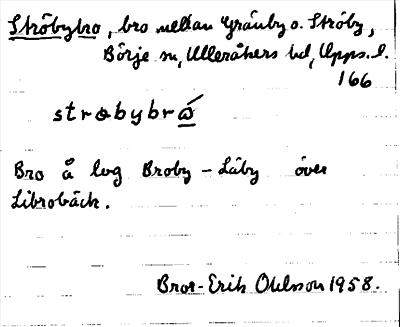 Ströbybro, bro mellan Gränby o. Ströby,
Börje sn, Ulleråkers hd, Upps. l.
166
strøbybrώ̲
Bro å lvg Broby - Läby över
Librobäck.
Bror-Erik Ohlsson 1958.